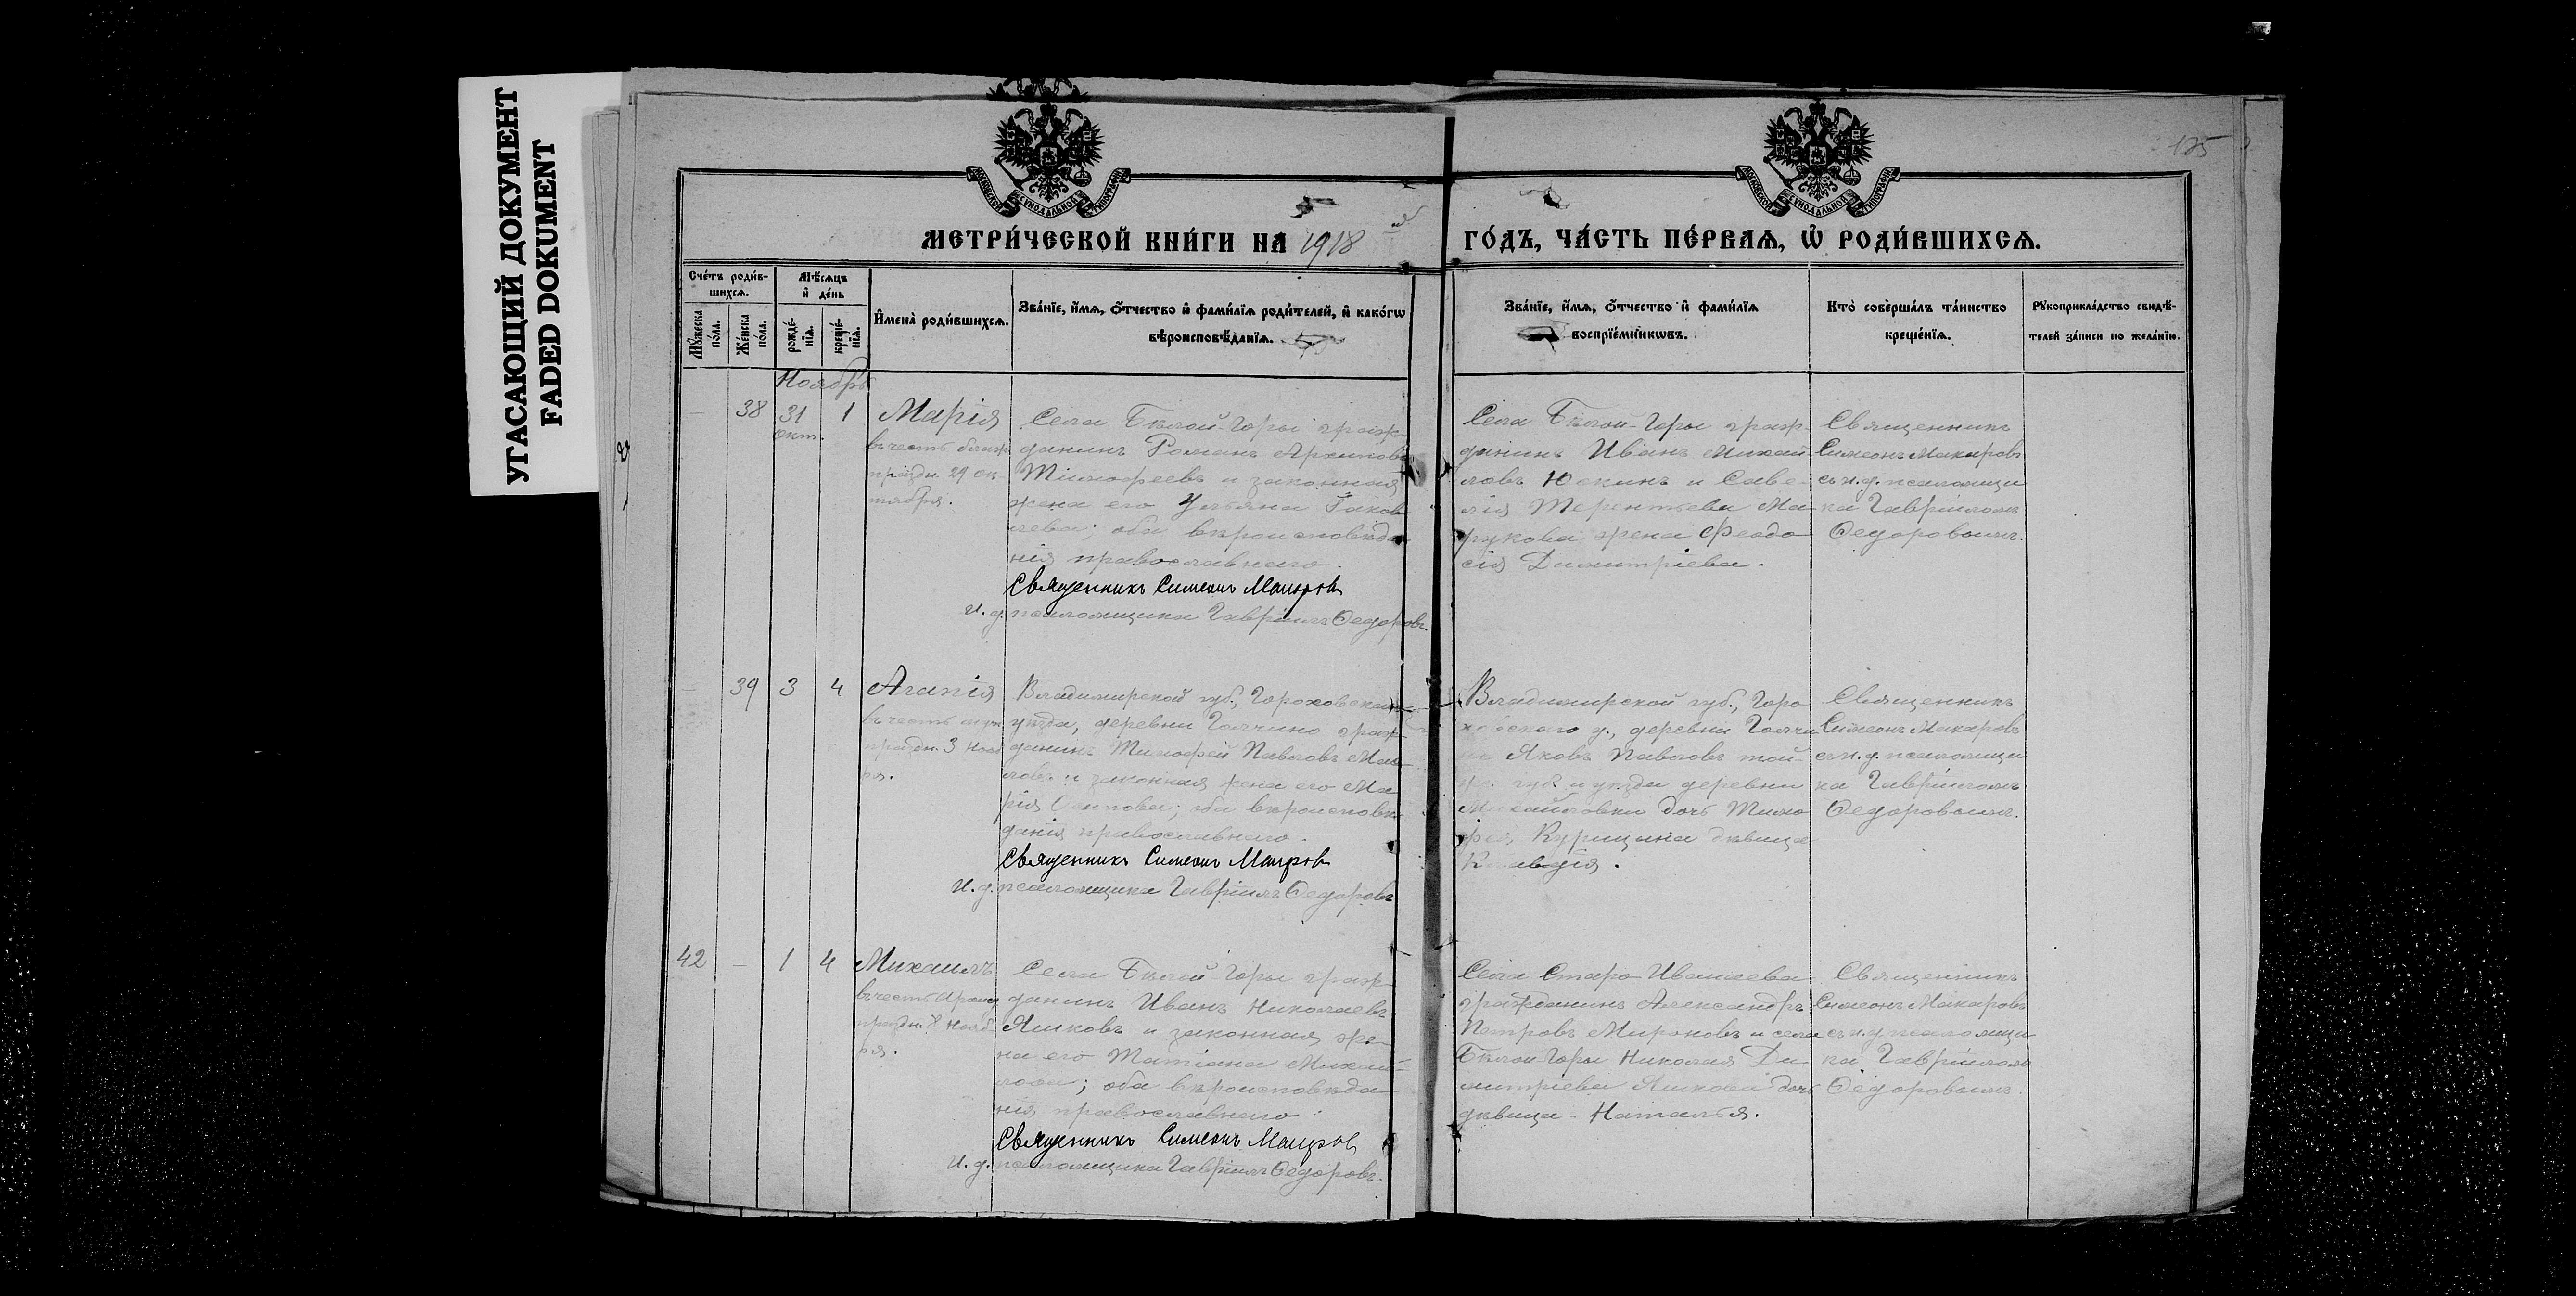 УГАСАЮЩИЙ ДОКУМЕНТ
FADED DOKUMENT
125
МОСКОВСКОЙ СѴНОДАЛЬНОЙ ТИПОГРАФІИ
МОСКОВСКОЙ СѴНОДАЛЬНОЙ ТИПОГРАФІИ
МЕТРИ́ЧЕСКОЙ КНИ́ГИ НА 1918
ГО́ДЪ, ЧА́СТЬ ПЕ́РВАѦ, Ѿ РОДИ́ВШИХСѦ.
Сче́тъ роди́в-
шихсѧ.
Мꙋжеска по́ла.
Же́нска по́ла.
Мѣ́сѧцъ
и҆ де́нь
рожде́-
нїѧ.
креще́-
нїѧ.
И҆мена̀ роди́вшихсѧ.
Зва́нїе, и҆́мѧ, ѻ҆́тчество и҆ фами́лїѧ роди́телей, и҆ како́гѡ
вѣроисповѣ́данїѧ.
Зва́нїе, и҆́мѧ, ѻ҆́тчество и҆ фами́лїѧ
воспрїе́мникѡвъ.
Кто̀ соверша́лъ та́инство
креще́нїѧ.
Рꙋкоприкла́дство свидѣ́-
телей за́писи по жела́нїю.
Ноябрь
38
31
окт.
1
Марія
въ честь
праздн. 29 ок-
тября.
Села Бѣлой-Горы граж-
данинъ Романъ Архиповъ
Тімофеевъ и законная
жена его Ульяна Іаков-
лева; оба вѣроисповѣда-
нія православнаго.
Священникъ Симеонъ Макаровъ
И. д. псаломщика Гавріилъ Ѳедоровъ.
Села Бѣлой-Горы граж-
данинъ Иванъ Михай-
ловъ Юкинъ и Саве-
лія Терентьева
жена Феодо-
сія Димитріева.
Священникъ
Симеонъ Макаровъ
съ и. д. псаломщи
ка Гавріиломъ
Ѳедоровымъ.
39
3
4
Агапія
въ честь муч.
праздн. 3 Нояб
ря.
Владимирской губ., Гороховскаго
уѣзда, деревни Галчино граж-
данинъ Тимофей Павловъ
и законная жена его Ма
рія Осипова; оба вѣроисповѣ-
данія православнаго.
Священникъ Симеонъ Макаровъ
И. д. псаломщика Гавріилъ Ѳедоровъ
Владимирской губ., Горо
ховскаго у., деревни Галчи
но Яковъ Павловъ той-
же губ. и уѣзда деревни
Михайловки дочь Тимо
фея Курицына дѣвица
Клавдія.
Священникъ
Симеонъ Макаровъ
съ и. д. псаломщи
ка Гавріиломъ
Ѳедоровымъ.
42
—
1
4
Михаилъ
въ честь Арханг
праздн. 8 Нояб
ря.
Села Бѣлой Горы граж-
данинъ Иванъ Николаевъ
Яшковъ и законная же-
на его Татіана Михай-
лова; оба вѣроисповѣда
нія православнаго.
Священникъ Симеонъ Макаровъ
И. д. псаломщика Гавріилъ Ѳедоровъ.
Села Старо-Иванаева
гражданинъ Александръ
Петровъ Мироновъ и села
Бѣлой Горы Николая Ди-
митріева Яшкова дочь
дѣвица - Наталья.
Священникъ
Симеонъ Макаровъ
съ и. д. псаломщи
ка Гавріиломъ
Ѳедоровымъ.